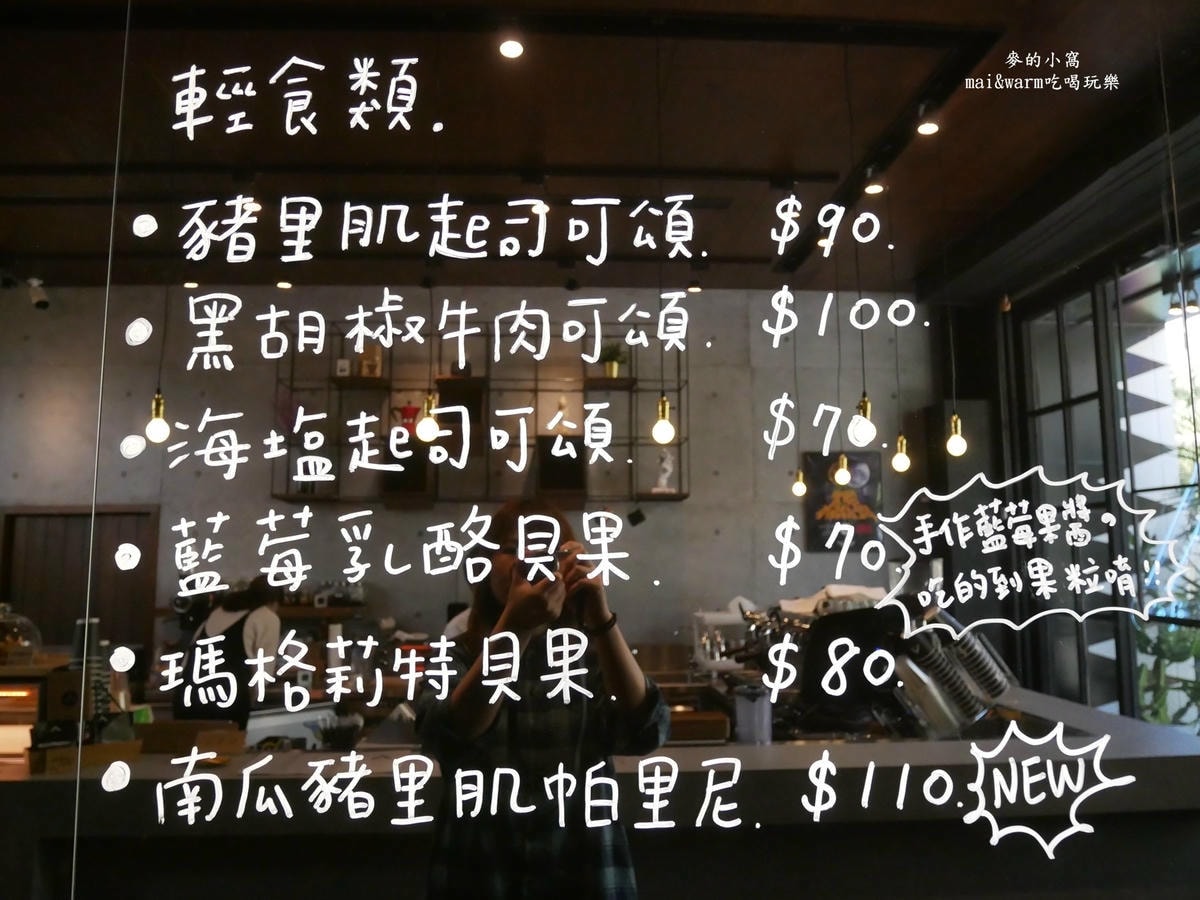 麥的小窩
mai&warm吃喝玩樂
輕食類.
豬里肌起司可頌. $90.
黑胡椒牛肉可頌. $100.
海塩起司可頌. $70.
藍莓乳酪貝果. $70.
手作藍莓果醬。
吃的到果粒唷!!
瑪格莉特貝果. $80.
南瓜豬里肌帕里尼. $110.
NEW